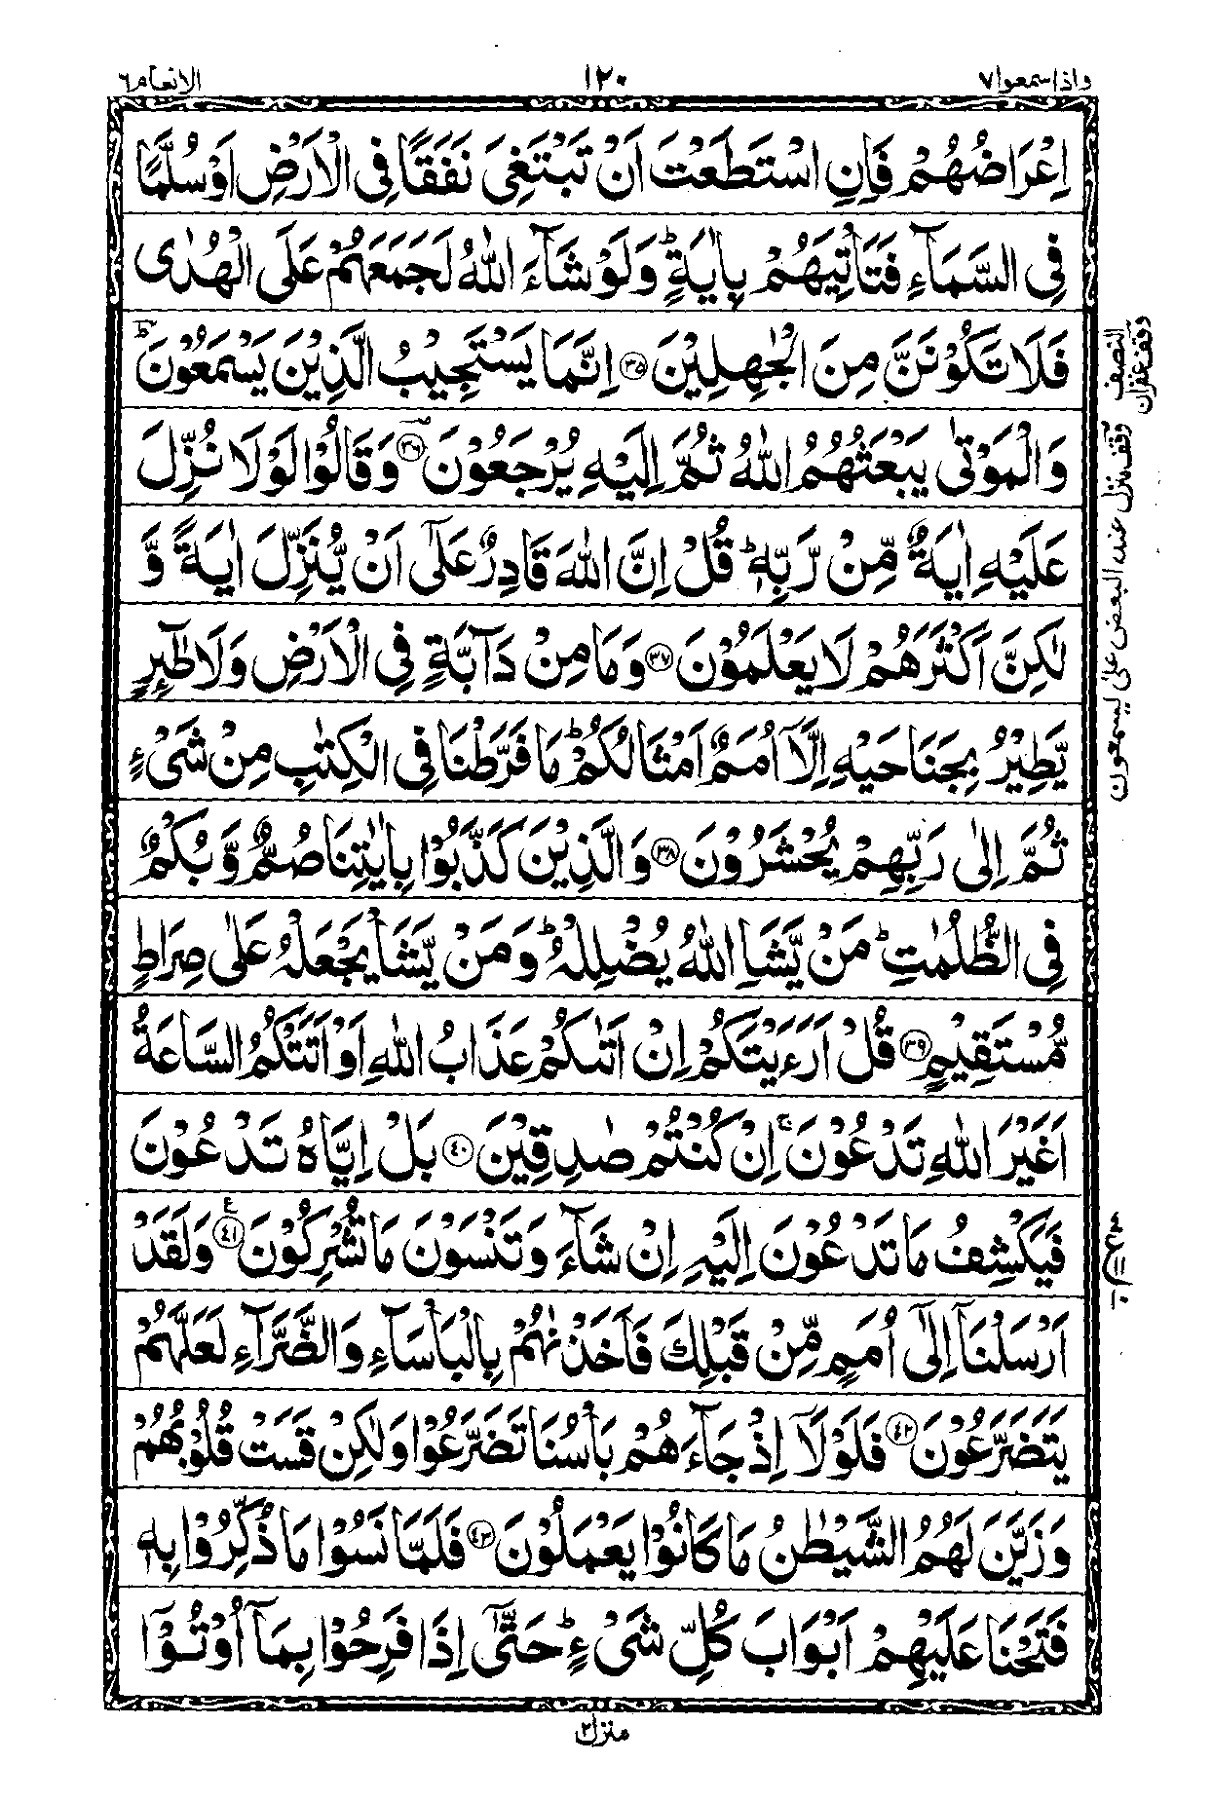 واذاسمعوا٧
١٢٠
الانعام٦
اِعْرَاضُهُمْ فَاِنِ اسْتَطَعْتَ اَنْ تَبْتَغِیَ نَفَقًا فِی الْاَرْضِ اَوْ سُلَّمًا
فِی السَّمَآءِ فَتَاْتِیَهُمْ بِاٰیَةٍ ؕ وَ لَوْ شَآءَ اللّٰهُ لَجَمَعَهُمْ عَلَی الْهُدٰی
فَلَا تَكُوْنَنَّ مِنَ الْجٰهِلِیْنَ ۳۵ اِنَّمَا یَسْتَجِیْبُ الَّذِیْنَ یَسْمَعُوْنَ ؕؔ
وَ الْمَوْتٰی یَبْعَثُهُمُ اللّٰهُ ثُمَّ اِلَیْهِ یُرْجَعُوْنَ ۳۶ وَ قَالُوْا لَوْ لَا نُزِّلَ
عَلَیْهِ اٰیَةٌ مِّنْ رَّبِّهٖ ؕ قُلْ اِنَّ اللّٰهَ قَادِرٌ عَلٰۤی اَنْ یُّنَزِّلَ اٰیَةً وَّ
لٰكِنَّ اَكْثَرَهُمْ لَا یَعْلَمُوْنَ ۳۷ وَ مَا مِنْ دَآبَّةٍ فِی الْاَرْضِ وَ لَا طٰٓىِٕرٍ
یَّطِیْرُ بِجَنَاحَیْهِ اِلَّاۤ اُمَمٌ اَمْثَالُكُمْ ؕ مَا فَرَّطْنَا فِی الْكِتٰبِ مِنْ شَیْءٍ
ثُمَّ اِلٰی رَبِّهِمْ یُحْشَرُوْنَ ۳۸ وَ الَّذِیْنَ كَذَّبُوْا بِاٰیٰتِنَا صُمٌّ وَّ بُكْمٌ
فِی الظُّلُمٰتِ ؕ مَنْ یَّشَاِ اللّٰهُ یُضْلِلْهُ ؕ وَ مَنْ یَّشَاْ یَجْعَلْهُ عَلٰی صِرَاطٍ
مُّسْتَقِیْمٍ ۳۹ قُلْ اَرَءَیْتَكُمْ اِنْ اَتٰىكُمْ عَذَابُ اللّٰهِ اَوْ اَتَتْكُمُ السَّاعَةُ
اَغَیْرَ اللّٰهِ تَدْعُوْنَ ۚ اِنْ كُنْتُمْ صٰدِقِیْنَ ۴۰ بَلْ اِیَّاهُ تَدْعُوْنَ
فَیَكْشِفُ مَا تَدْعُوْنَ اِلَیْهِ اِنْ شَآءَ وَ تَنْسَوْنَ مَا تُشْرِكُوْنَ ۴۱ ع وَ لَقَدْ
اَرْسَلْنَاۤ اِلٰۤی اُمَمٍ مِّنْ قَبْلِكَ فَاَخَذْنٰهُمْ بِالْبَاْسَآءِ وَ الضَّرَّآءِ لَعَلَّهُمْ
یَتَضَرَّعُوْنَ ۴۲ فَلَوْ لَاۤ اِذْ جَآءَهُمْ بَاْسُنَا تَضَرَّعُوْا وَ لٰكِنْ قَسَتْ قُلُوْبُهُمْ
وَ زَیَّنَ لَهُمُ الشَّیْطٰنُ مَا كَانُوْا یَعْمَلُوْنَ ۴۳ فَلَمَّا نَسُوْا مَا ذُكِّرُوْا بِهٖ
فَتَحْنَا عَلَیْهِمْ اَبْوَابَ كُلِّ شَیْءٍ ؕ حَتّٰۤی اِذَا فَرِحُوْا بِمَاۤ اُوْتُوْۤا
النصف
وقف غفران
وقف منزل عند البعض علی یسمعون
منزل۲